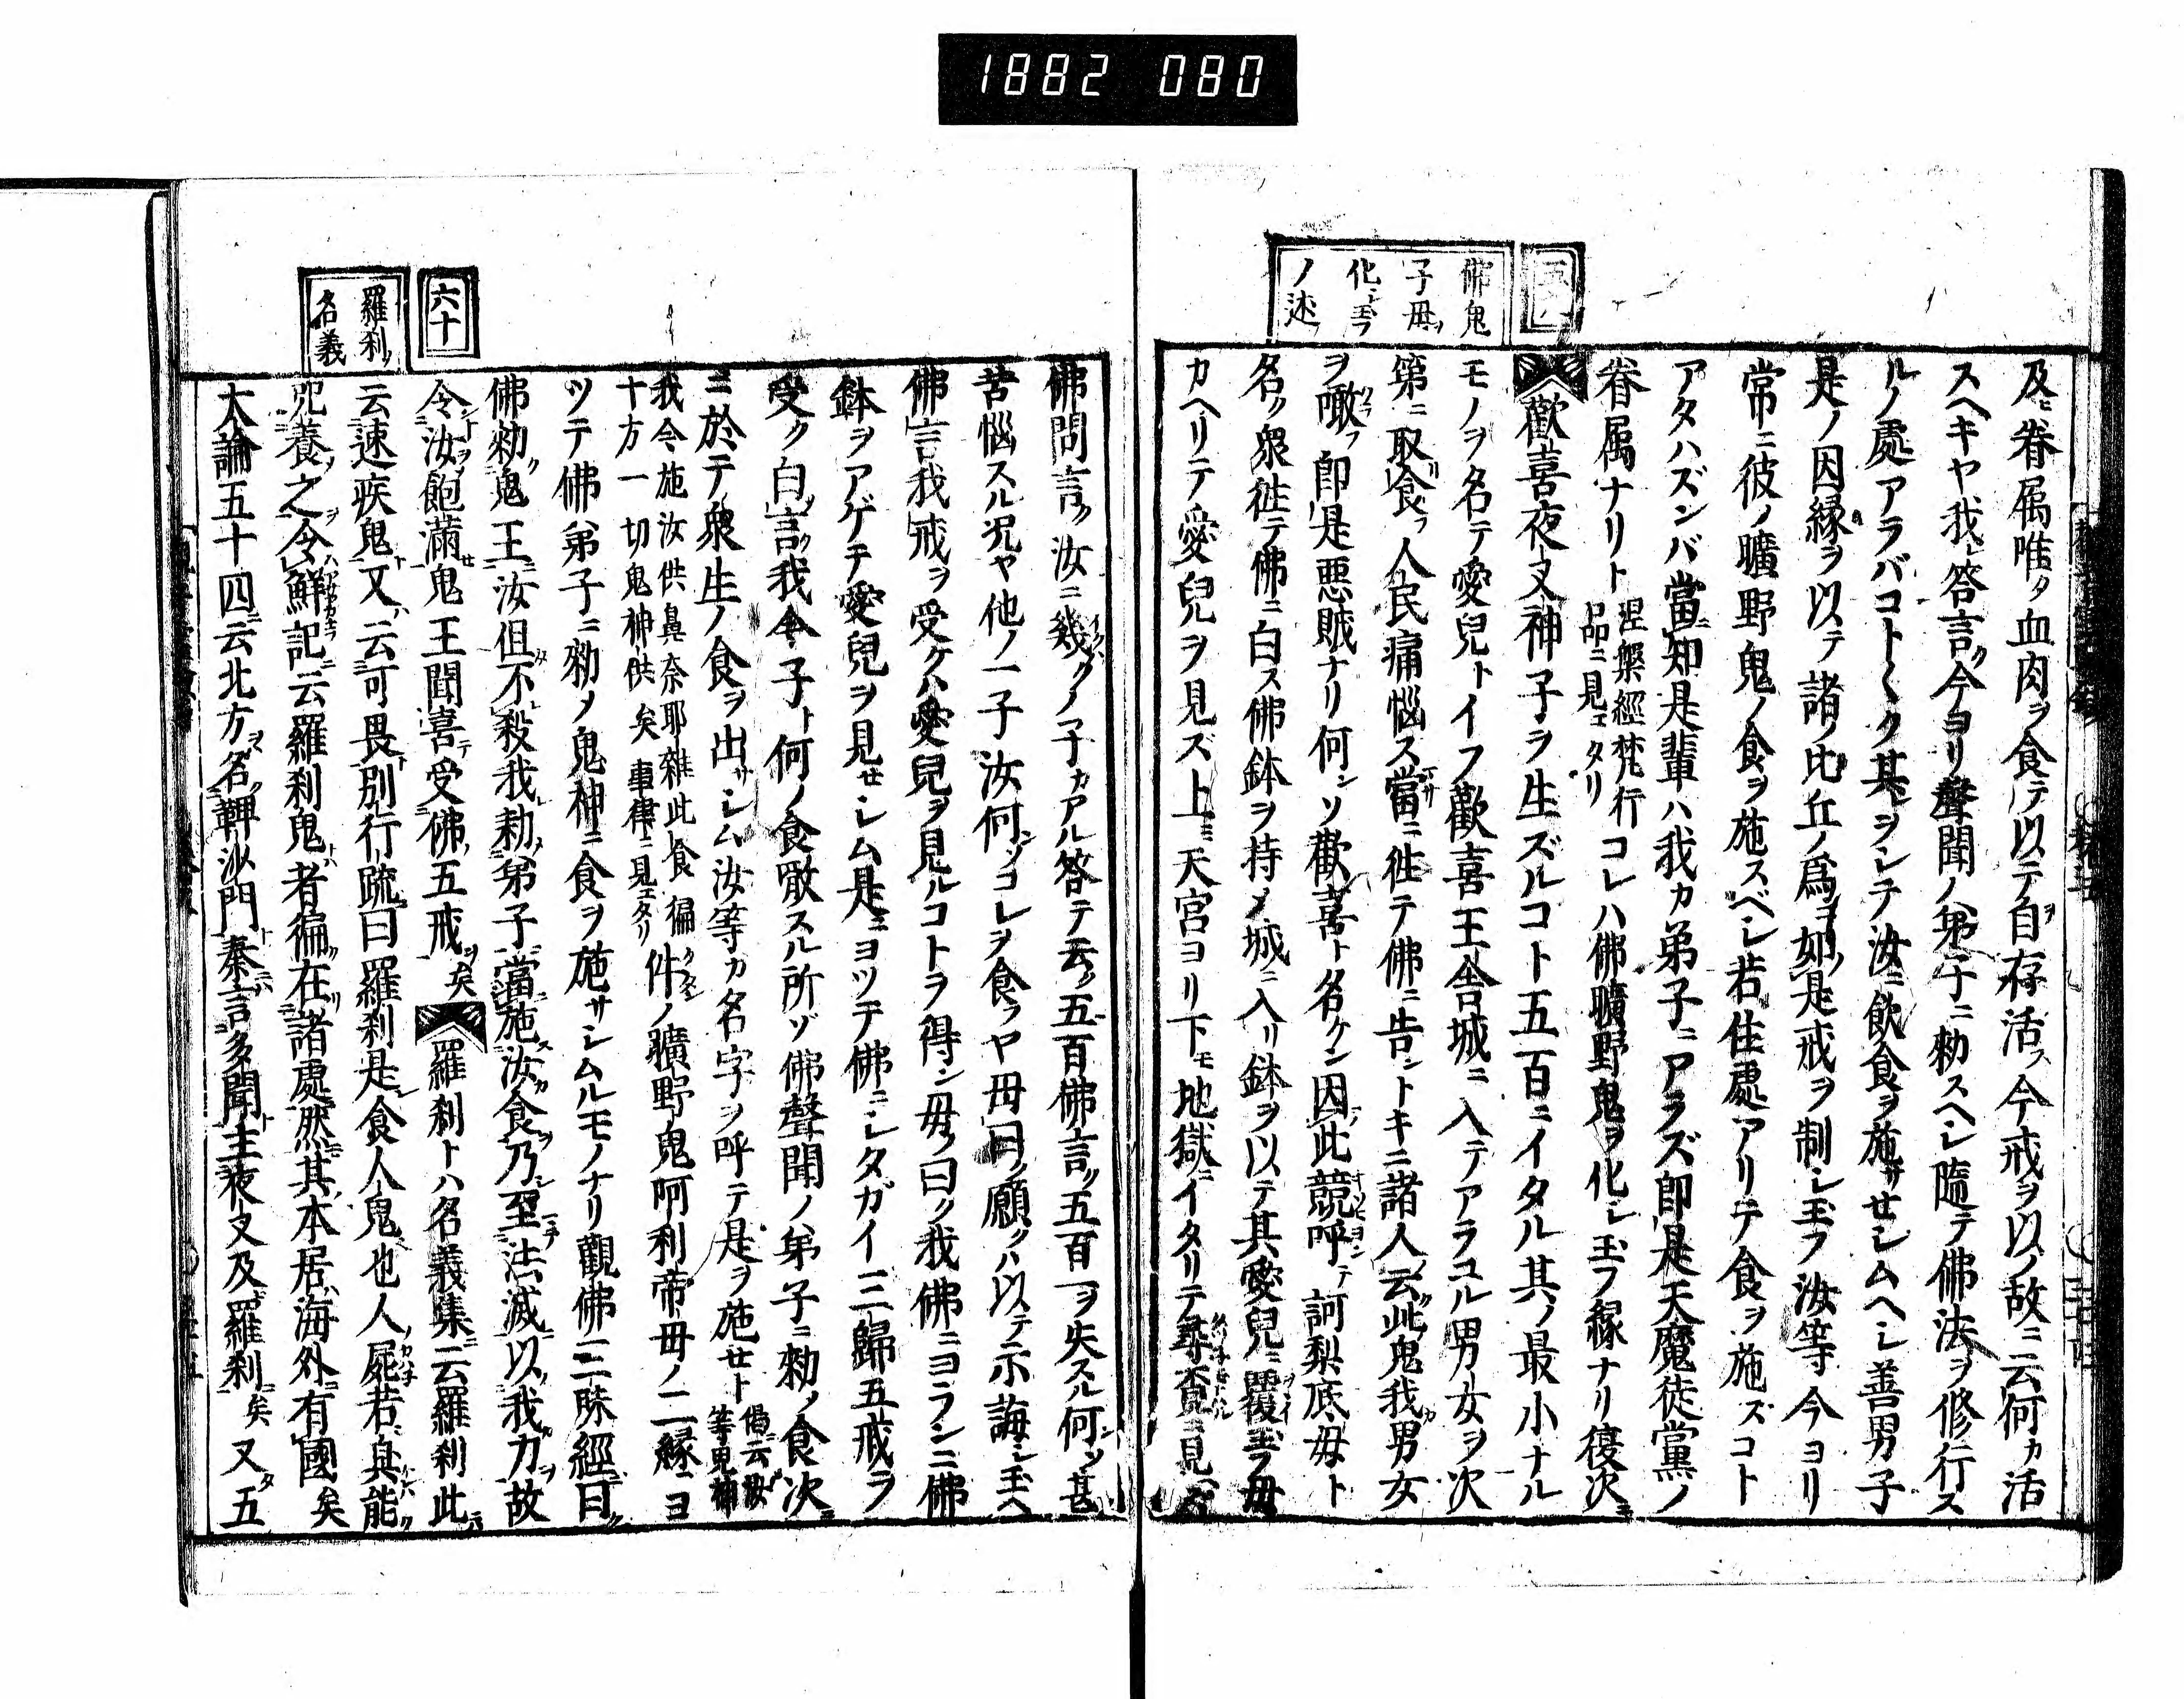 1882 080
佛鬼
子母ヲ
化シ玉フ
ノ迹
及ヒ眷属唯タ血肉ヲ食テ以テ自ヲ存活ス今戒ヲ以ノ故ニ云何カ活
スヘキヤ我レ答言ク今ヨリ聲聞ノ弟子ニ勅スヘシ隨テ佛法ヲ修行ス
ルノ處アラバコト〱ク其ヲシテ汝ニ飲食ヲ施サセシムヘシ善男子
是ノ因縁ヲ以テ諸ノ比丘ノ爲ニ如是戒ヲ制シ玉フ汝等今ヨリ
常ニ彼ノ曠野鬼ノ食ヲ施スベシ若住處アリテ食ヲ施ズコト
アタハズンバ當ニ知是輩ハ我カ弟子ニアラズ即是天魔徒黨ノ
眷属ナリト涅槃經梵行品ニ見エタリコレハ佛曠野鬼ヲ化シ玉フ縁ナリ復次ニ
歡喜夜叉神子ヲ生ズルコト五百ニイタル其ノ最小ナル
モノヲ名テ愛兒トイフ歡喜王舍城ニ入テアラユル男女ヲ次
第ニ取リ食フ人民痛惱ス當ニ徃テ佛ニ告ントキニ諸人云ク此鬼我カ男女
ヲ噉フ即是悪賊ナリ何ンソ歡喜ト名ケン因此競呼テ訶梨底母ト
名ク衆徃テ佛ニ白ス佛鉢ヲ持メ城ニ入リ鉢ヲ以テ其愛兒ニ覆玉フ母
カヘリテ愛兒ヲ見ズ上ミ天宮ヨリ下モ地獄ニイタリテ尋覓ニ見ヘズ
佛問言ク汝ニ幾クノ子カアル答テ云ク五百佛言ク五百一ヲ失スル何ンソ甚
苦惱スル况ヤ他ノ一子汝何ンソコレヲ食ラヤ母曰ク願クハ以テ示誨シ玉ヘ
佛言我戒ヲ受ケハ愛兒ヲ見ルコトヲ得ン母ノ曰ク我佛ニヨラン二佛
鉢ヲアゲテ愛兒ヲ見セシム是ニヨツテ佛ニシタガイ三歸五戒ヲ
受ク白言ク我今子ト何ノ食噉スル所ゾ佛聲聞ノ弟子ニ勅ノ食次ニ
ニ於テ衆生ノ食ヲ出サシム汝等カ名字ヲ呼テ是ヲ施セト偈云汝等鬼神
我今施汝供鼻奈耶雜此食徧
十方一切鬼神供矣事律ニ見エタリ件ノ曠野鬼阿利帝母ノ二縁ニヨ
ツテ佛弟子ニ勅ノ鬼神ニ食ヲ施サシムルモノナリ觀佛三昧經曰
佛勅鬼王汝但不殺我勅弟子當施汝食乃至法滅以我力故
令汝飽滿鬼王聞喜受佛五戒矣羅刹トハ名義集云羅刹此
云速疾鬼又云可畏別行疏曰羅刹是食人鬼也人屍若臭能
咒養之令鮮記云羅刹鬼者徧在諸處然其本居海外有國矣
大論五十四云北方名鞞沙門秦言多聞主夜叉及羅刹矣又五
六十
羅刹
名義